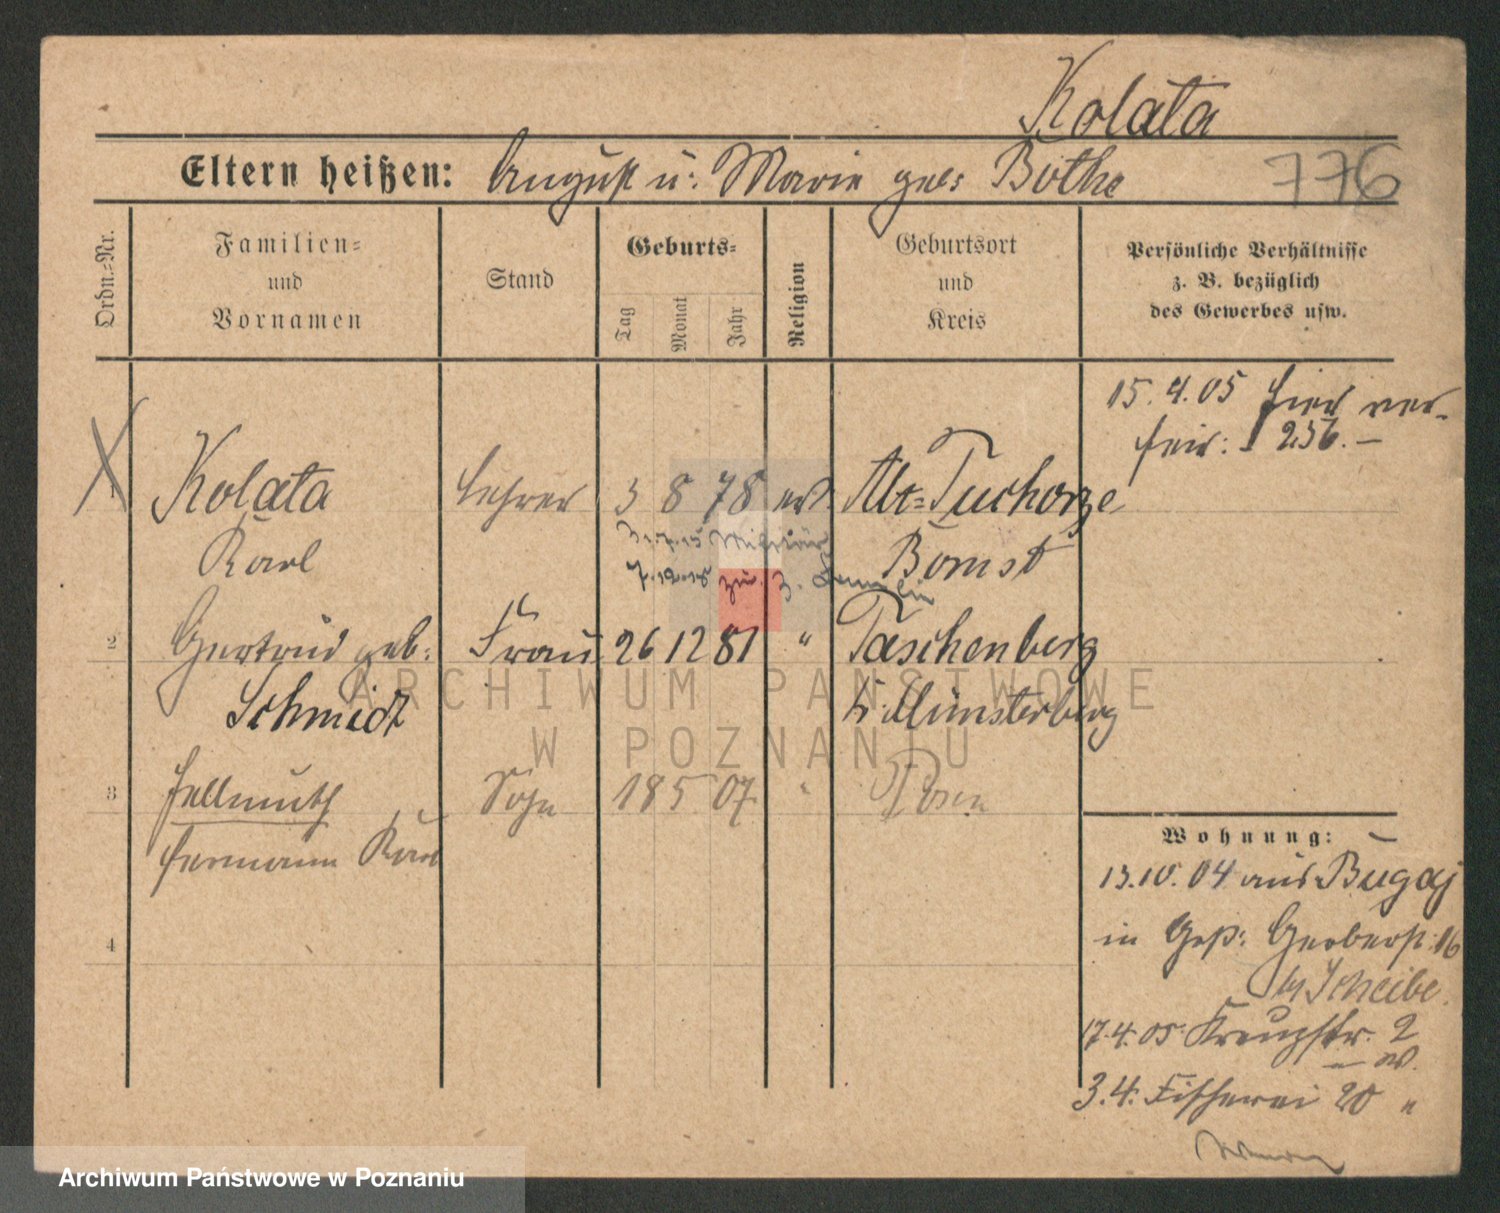 Kolata
Eltern heißen: August u. Marie geb: Bothe
776
Ordn.=Nr.
Familien=
und
Vornamen
Stand
Geburts=
Tag
Monat
Jahr
Religion
Geburtsort
und
Kreis
Persönliche Verhältnisse
z. B. bezüglich
des Gewerbes usw.
15. 4. 05 hier ver-
heir: I 256. –
1
Kolata
Karl
Lehrer
3 8 78
ev.
Alt=Tuchorze
Bomst
Militär
7.12.18 zur.
2
Gertrud geb.
Schmidt
Frau
26 12 81
"
Taschenberg
Kr. Münsterberg
3
Hellmuth
Hermann Karl
Sohn
18 5 07
"
Posen
4
Wohnung:
13.10.04 aus Bugaj
in Gerberstr. 16
b/ Scheibe.
17.4.05. Kreuzstr. 2
3.4. Fischerei 20 "
ARCHIWUM PAŃSTWOWE
W POZNANIU
Archiwum Państwowe w Poznaniu